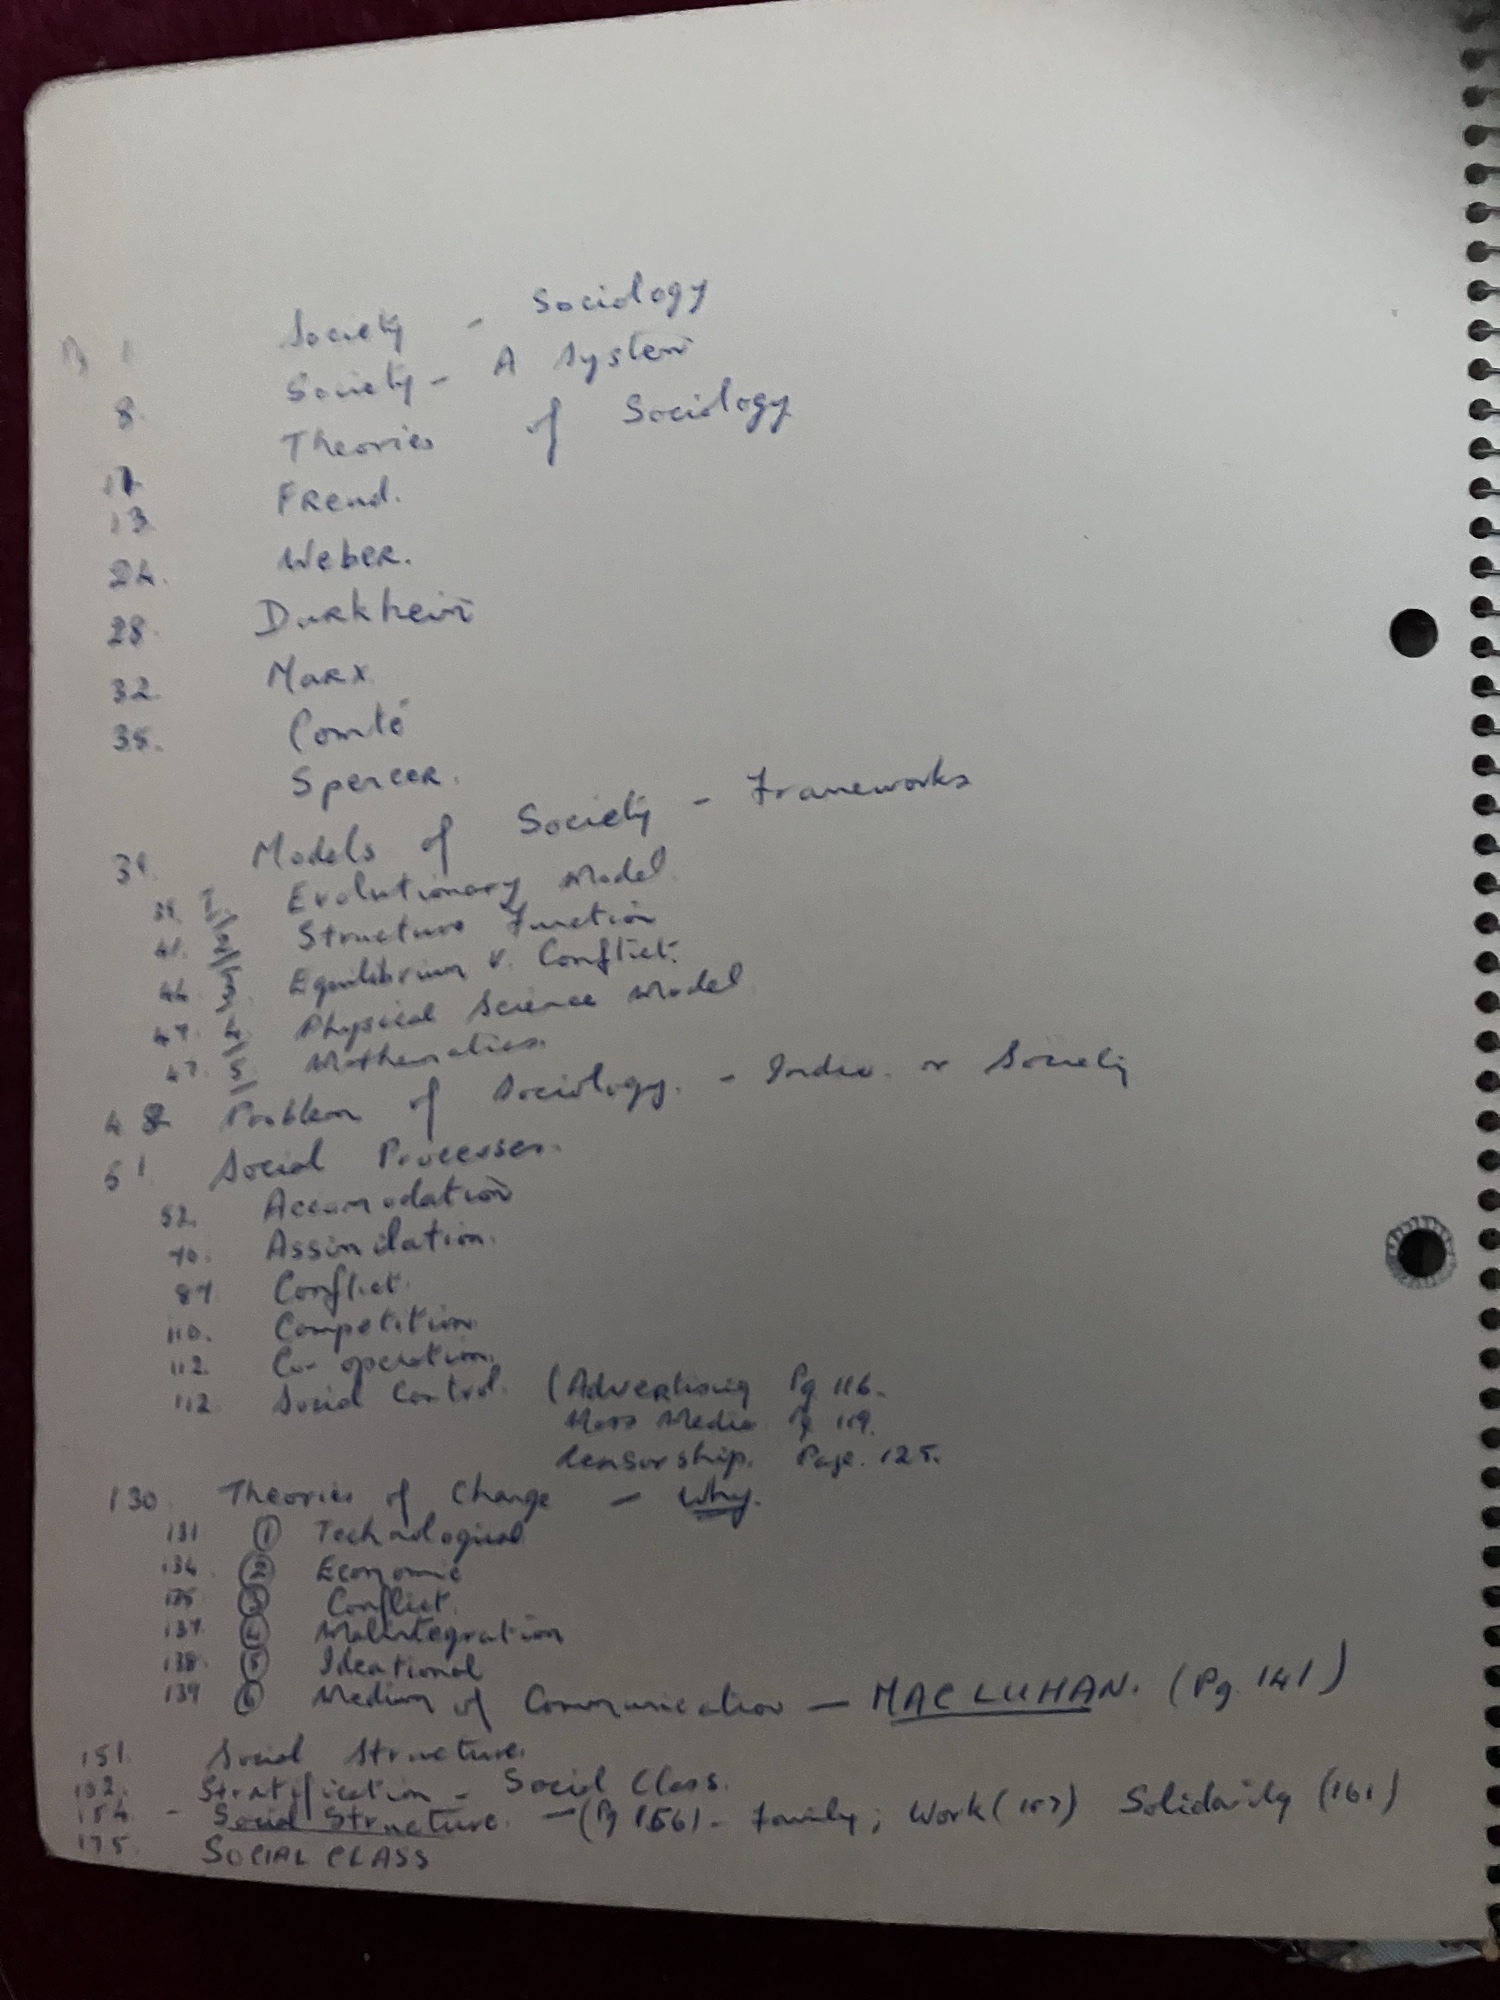 Pg 1 Society - Sociology
8. Society - A System
12 Theories of Sociology
13 Freud.
24. Weber.
28. Durkheim
32. Marx
35. Comté
Spencer.
39. Models of Society - Frameworks
39. 1. Evolutionary Model
41. 2 Structure Function
44 3. Equilibrium v. Conflict.
47. 4. Physical Science Model
47. 5 Mathematics.
48 Problem of Sociology. - Indiv. or Society
51. Social Processes.
52. Accomodation
70. Assimilation.
87. Conflict.
110. Competition
112. Co-operation.
112. Social Control. (Advertising Pg 116.
Mass Media Pg 119.
Censorship. Page. 125.
130. Theories of Change - Why.
131 1 Technological
134. 2 Economic
135 3 Conflict.
137. 4 Malintegration
138. 5 Ideational
139 6 Medium of Communication - MACLUHAN. (Pg. 141)
151. Social Structure.
152. Stratification - Social Class.
154. - Social Structure. - (Pg 156) - Family; Work (157) Solidarity (161)
175. SOCIAL CLASS